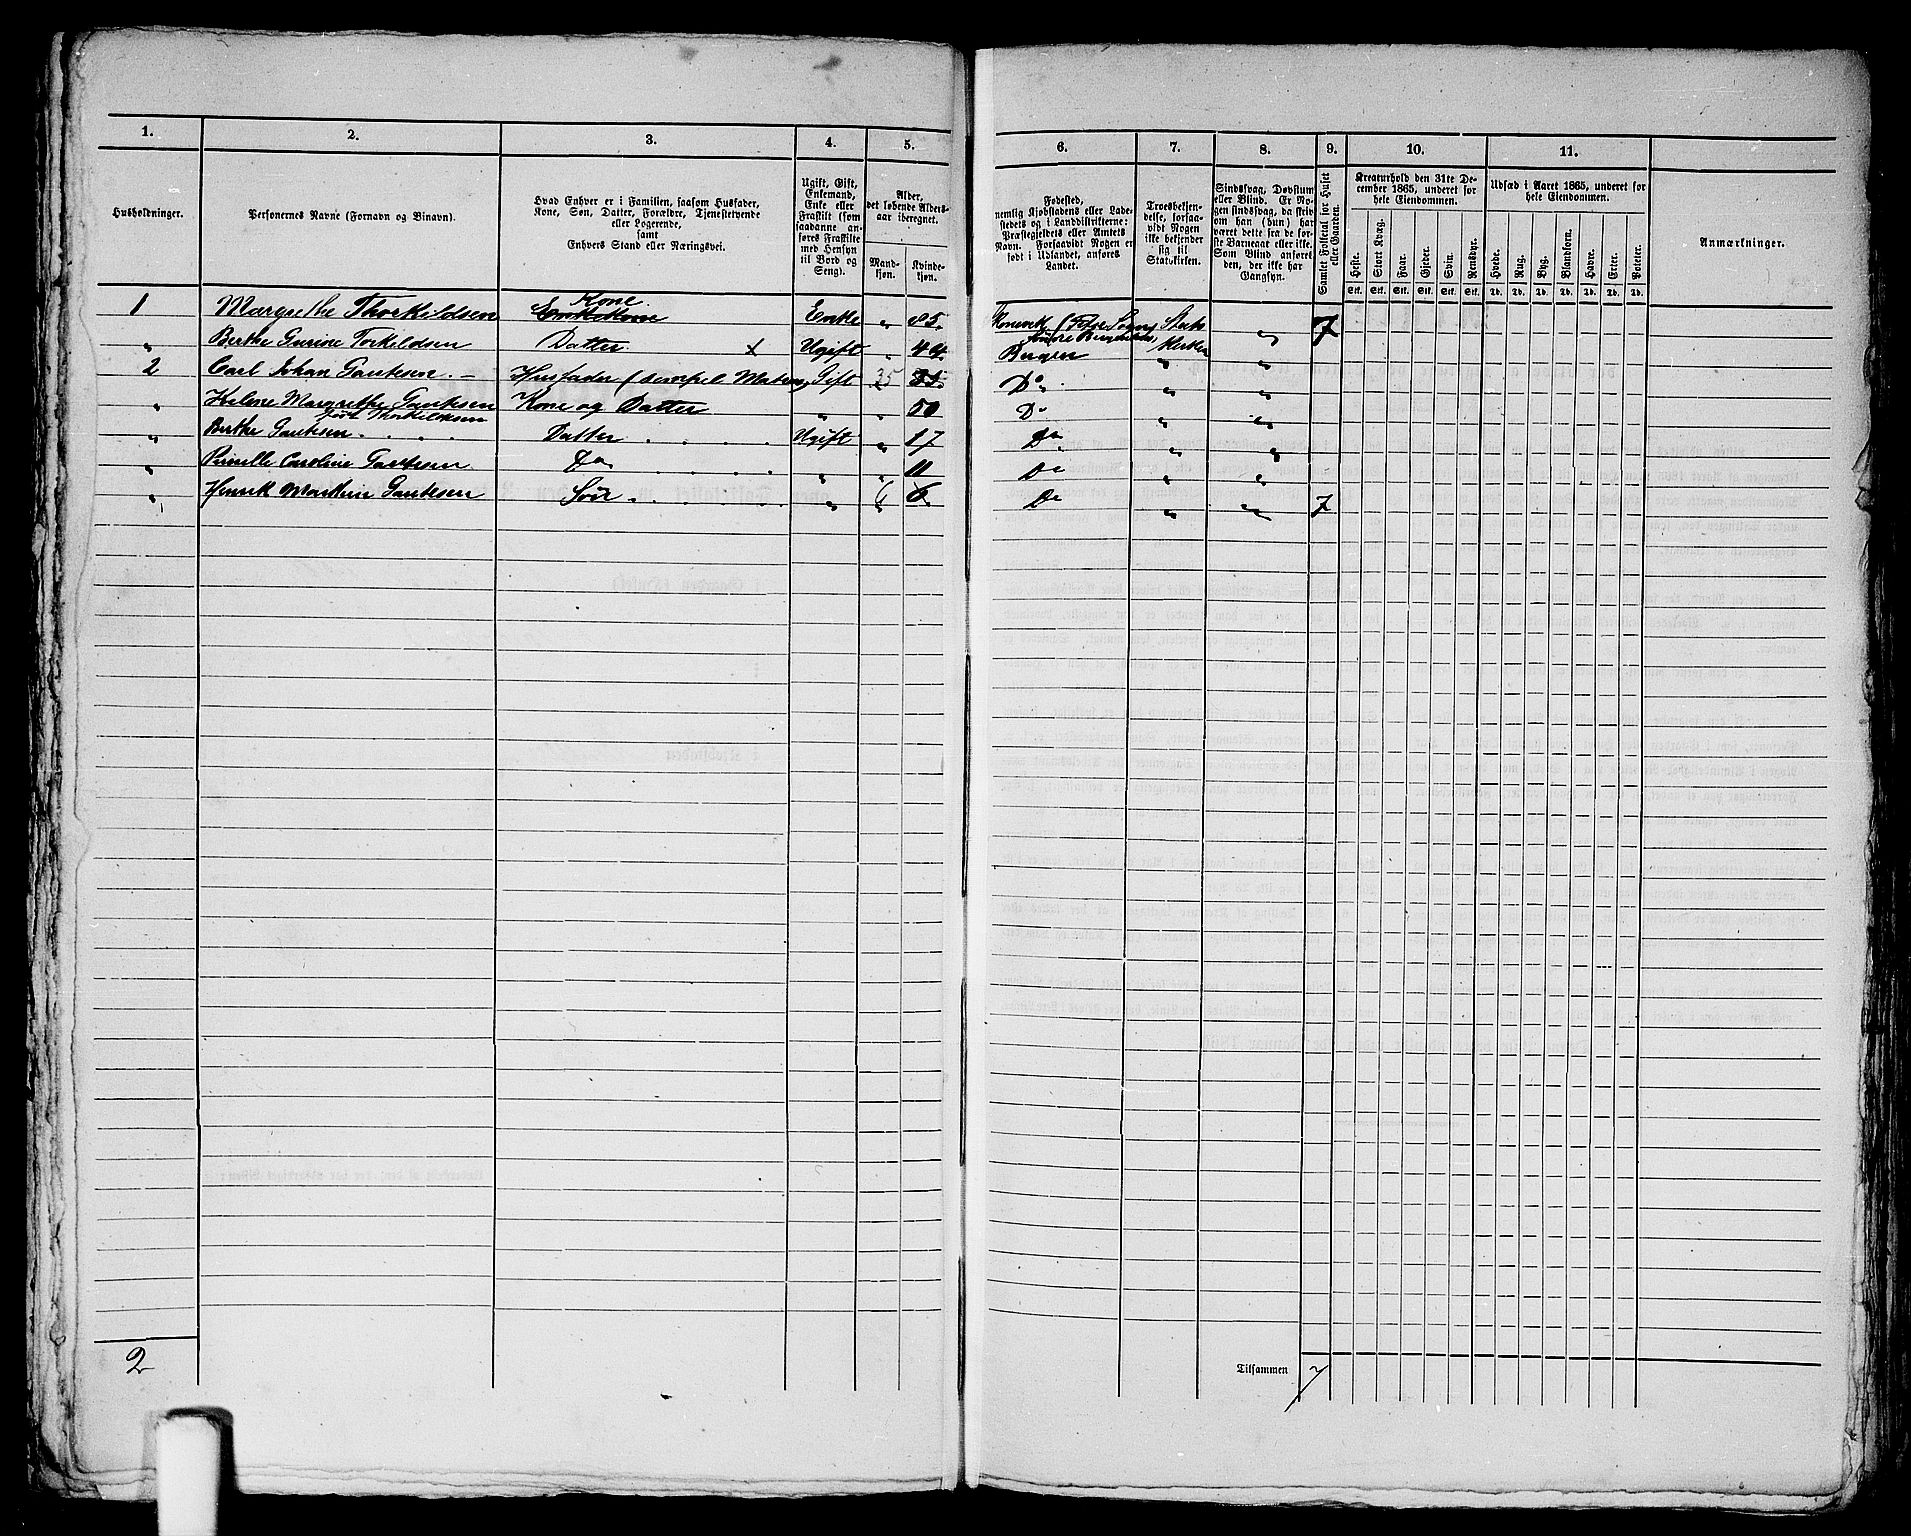 1. 2. 3. 4. 5. 6. 7. 8. 9. 10. 11.
Husholdninger.
Personernes Navne (Fornavn og Binavn).
Hvad Enhver er i Familien, saasom Husfader,
Kone, Søn, Datter, Forældre, Tjenestetyende
eller Logerende,
samt
Enhvers Stand eller Næringsvei.
Ugift, Gift,
Enkemand,
Enke eller
Fraskilt (som
saadanne an-
føres Fraskilte
med Hensyn
til Bord og
Seng).
Alder,
det løbende Alders-
aar iberegnet.
Mand-
kjøn.
Kvinde-
kjøn.
Fødested,
nemlig Kjøbstadens eller Lade-
stedets og i Landdistrikterne:
Præstegjeldets eller Amtets
Navn. Forsaavidt Nogen er
født i Udlandet, anføres
Landet.
Troesbekjen-
delse, forsaa-
vidt Nogen
ikke bekjender
sig til
Statskirken.
Sindssvag, Døvstum
eller Blind. Er No-
gen sindssvag, da skriv
om han (hun) har
været dette fra de før-
ste Barneaar eller ikke.
Som Blind anføres
den, der ikke har
Gangsyn.
Samlet Folketal for Huset
eller Gaarden.
Kreaturhold den 31te De-
cember 1865, underet for
hele Eiendommen.
Heste. Stort Kvæg. Faar. Gjeder. Svin. Rensdyr.
Stk. Stk. Stk. Stk. Stk. Stk.
Udsæd i Aaret 1865, underet for
hele Eiendommen.
Hvede. Rug. Byg. Blandkorn. Havre. Erter. Poteter.
Td. Td. Td. Td. Td. Td. Td.
Anmærkninger.
Kone
1 Margrethe Thorkildsen Enke " 85. 7
" Berthe Gurine Torkildsen Datter. x Ugift " 44. Bergen " "
2 Carl Johan Gautesen. - Husfader Gift 35 35 Do " "
" Helene Margrethe Gautesen Kone og Datter " " 50 Do " "
født Thorkildsen
" Berthe Gautesen. . . . Datter . . . . Ugift " 17 Do " "
" Pernille Caroline Gautesen Do . . . . " " 11 Do " "
" Henrik Gautesen Søn . . . . . " 6 6 Do " " 7
2 Tilsammen 7